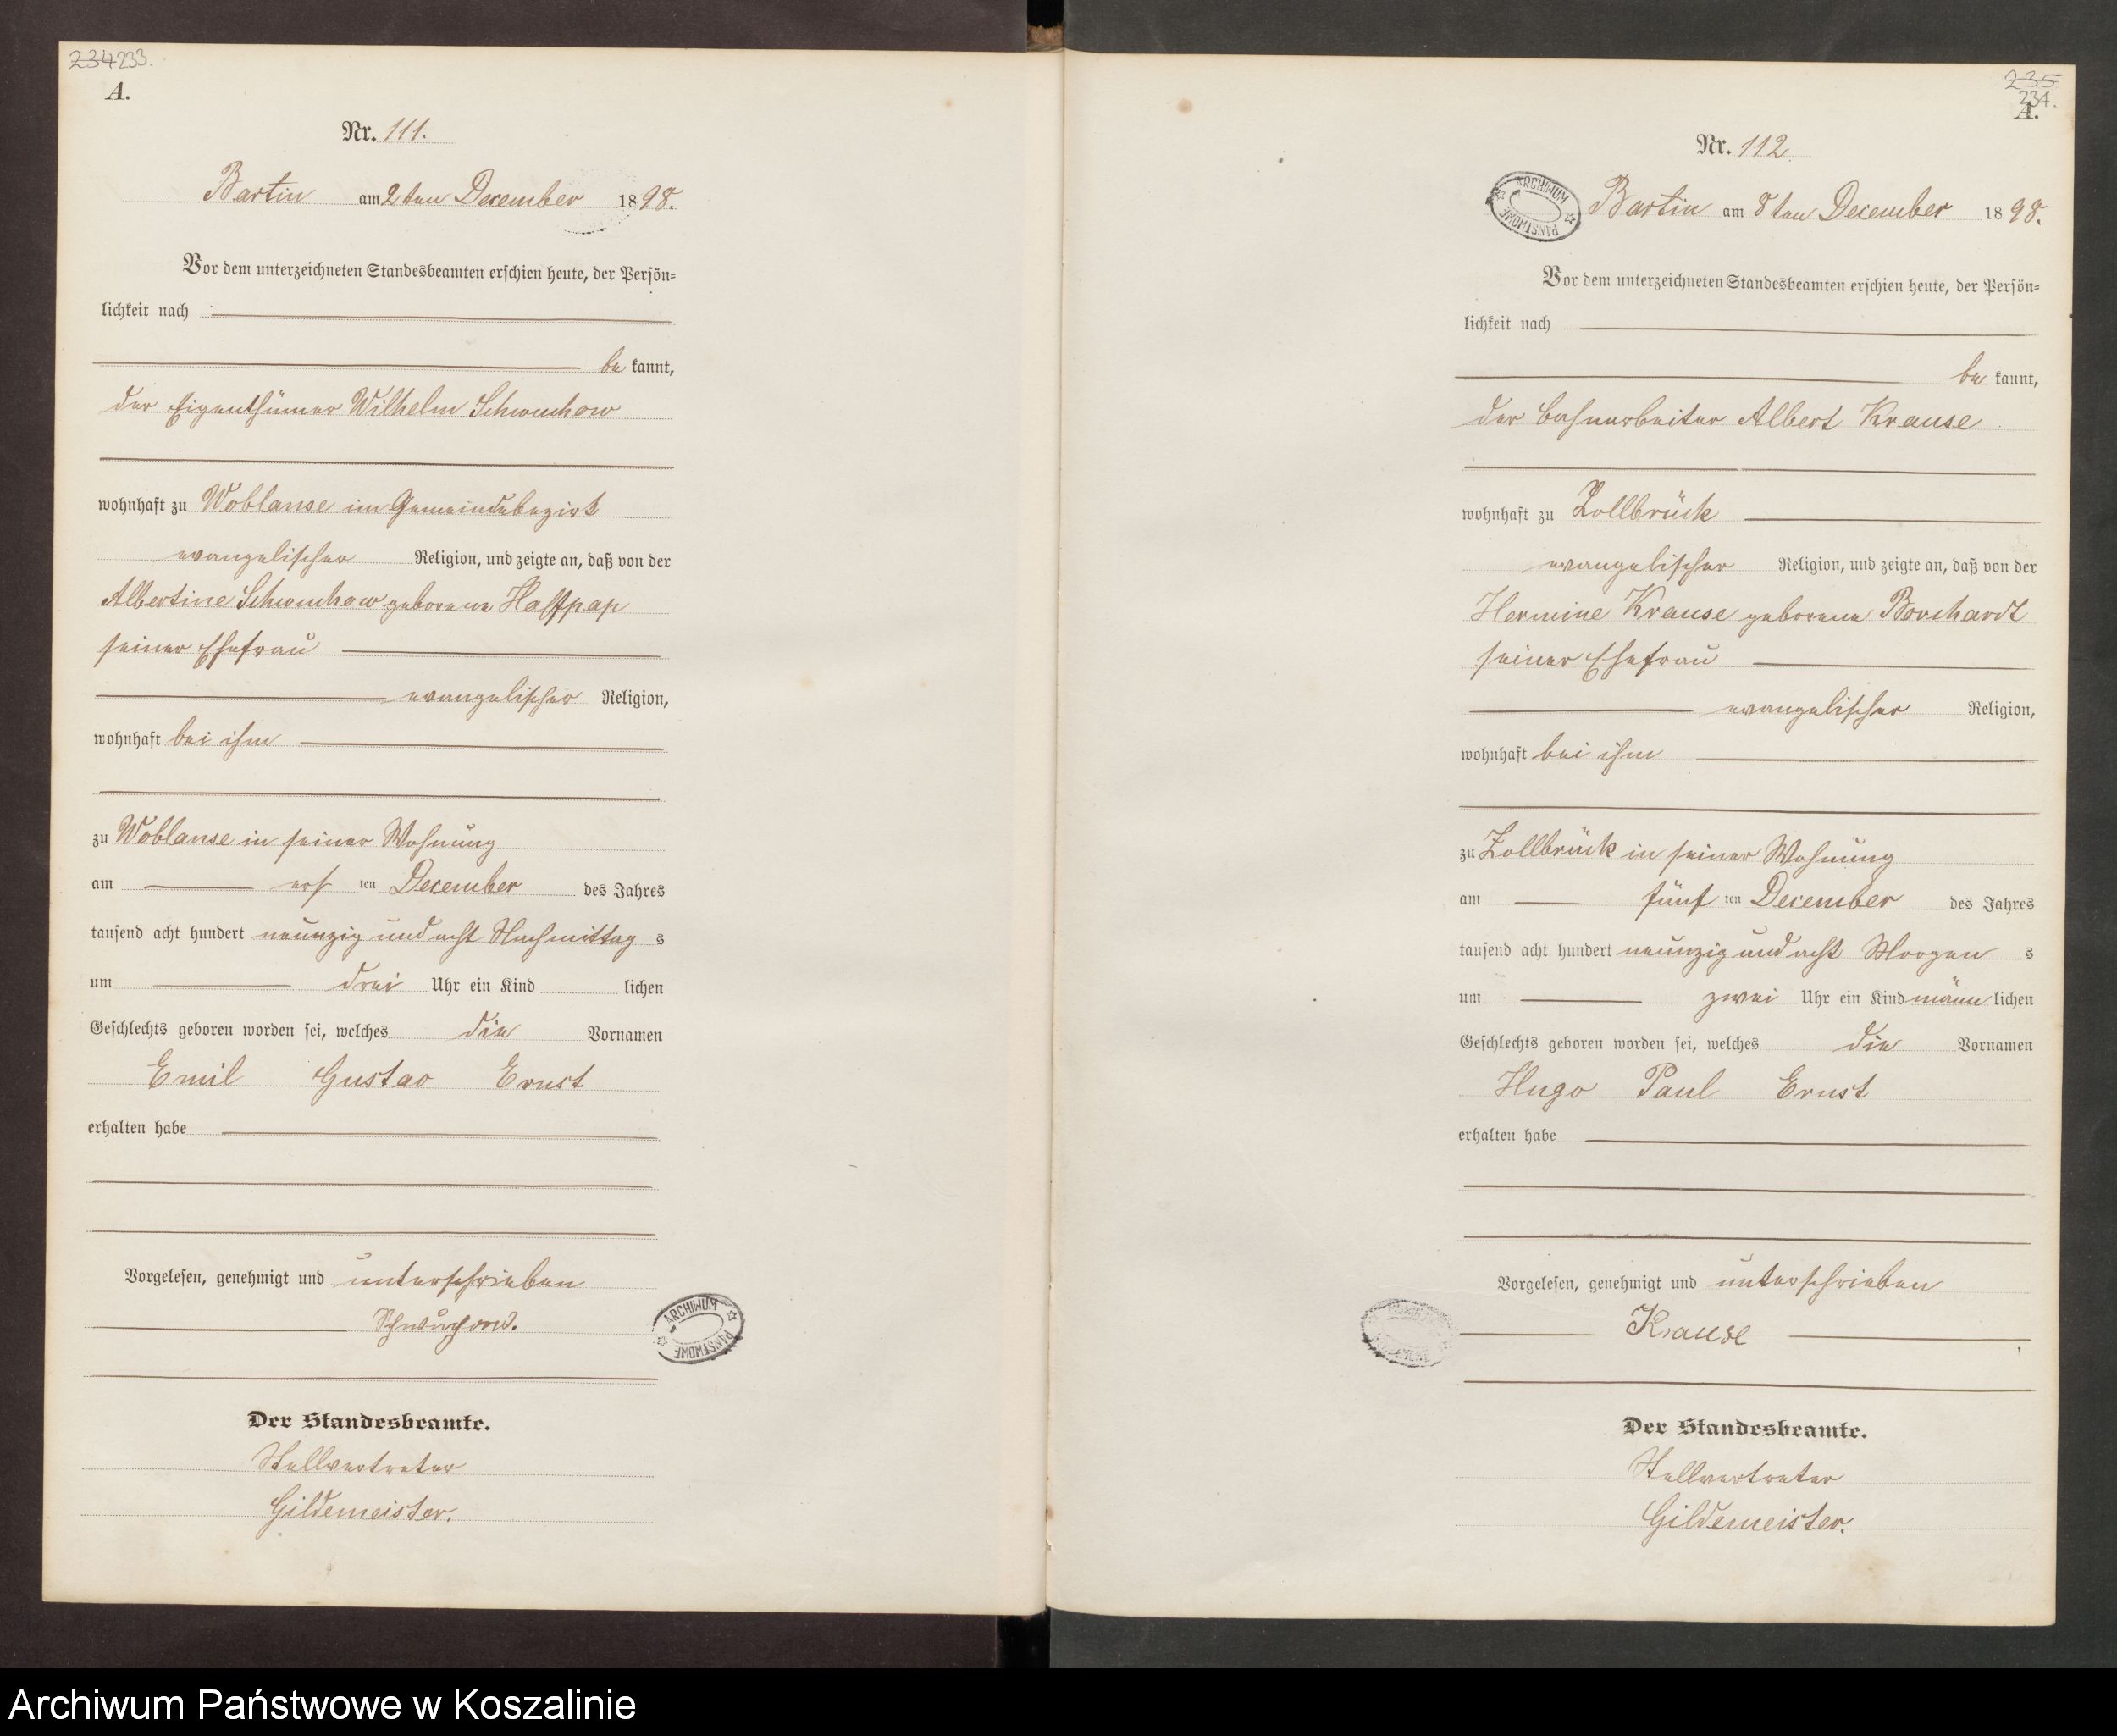 234 233.
A.
Nr. 111.
Bartin am 2ten December 1898.
Vor dem unterzeichneten Standesbeamten erschien heute, der Persön-
lichkeit nach
be kannt,
der Eigenthümer Wilhelm Schwuchow
wohnhaft zu Woblanse im Gemeindebezirk
evangelischer Religion, und zeigte an, daß von der
Albertine Schwuchow geborene Halfpap
seiner Ehefrau
evangelischer Religion,
wohnhaft bei ihm
zu Woblanse in seiner Wohnung
am ersten December des Jahres
tausend acht hundert neunzig und acht Nachmittag s
um drei Uhr ein Kind lichen
Geschlechts geboren worden sei, welches die Vornamen
Emil Gustav Ernst
erhalten habe
Vorgelesen, genehmigt und unterschrieben
Schwuchow.
ARCHIWUM PAŃSTWOWE
Der Standesbeamte.
Stellvertreter
Gildemeister.
235
234.
A.
Nr. 112
ARCHIWUM PAŃSTWOWE
Bartin am 8ten December 1898.
Vor dem unterzeichneten Standesbeamten erschien heute, der Persön-
lichkeit nach
be kannt,
der Bahnarbeiter Albert Krause
wohnhaft zu Zollbrück
evangelischer Religion, und zeigte an, daß von der
Hermine Krause geborene Borchardt
seiner Ehefrau
evangelischer Religion,
wohnhaft bei ihm
zu Zollbrück in seiner Wohnung
am fünf ten December des Jahres
tausend acht hundert neunzig und acht Morgen s
um zwei Uhr ein Kind männ lichen
Geschlechts geboren worden sei, welches die Vornamen
Hugo Paul Ernst
erhalten habe
Vorgelesen, genehmigt und unterschrieben
Krause
Der Standesbeamte.
Stellvertreter
Gildemeister.
Archiwum Państwowe w Koszalinie